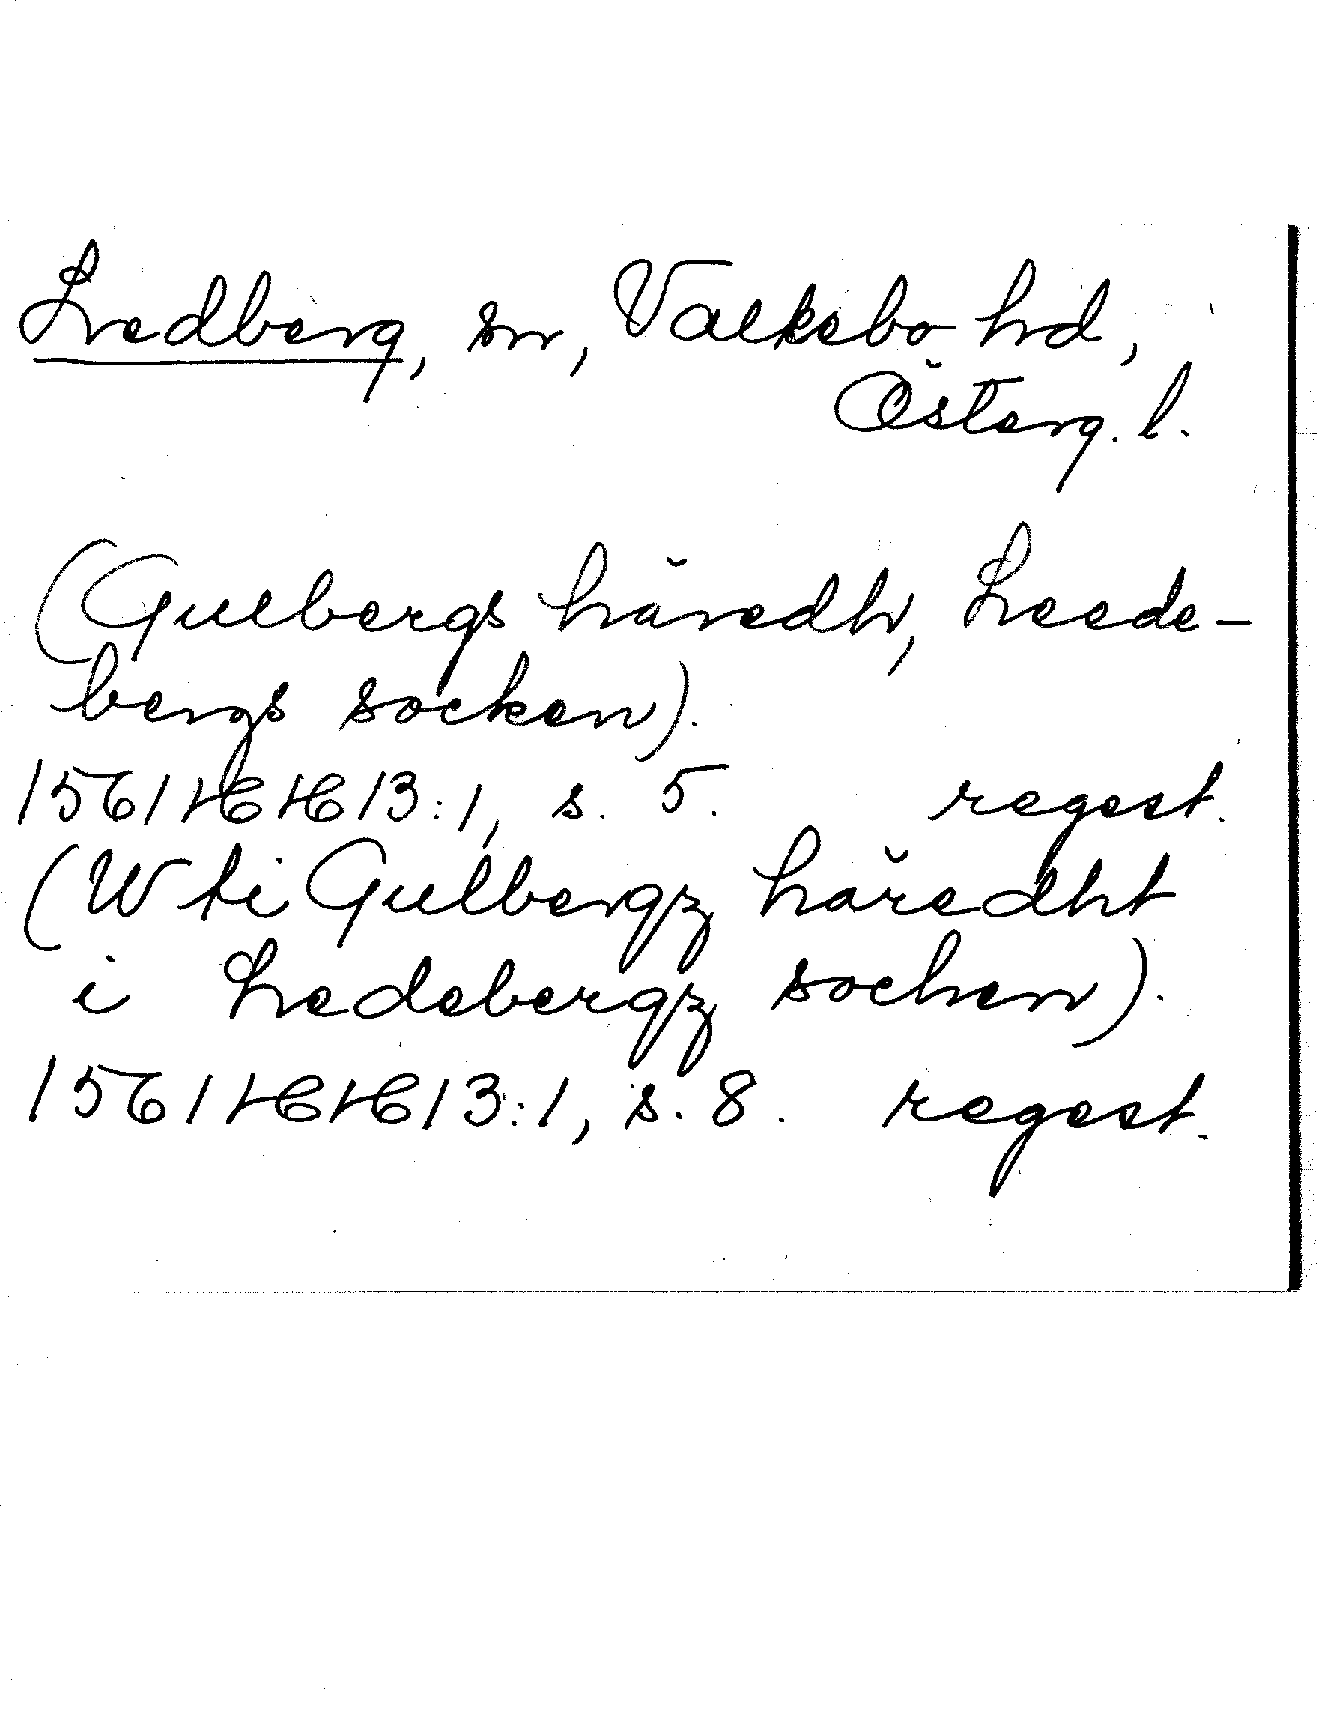 Ledberg, sn, Valkebo hd,
Österg. l.
(Gullbergs häredh, Leede-
bergs socken).
1561 HH 13:1, s. 5. regest.
(W ti Gulbergz häredht
i Ledebergz sochen).
1561 HH 13:1, s. 8. regest.